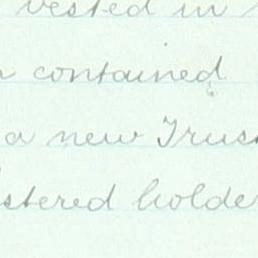 vested in
contained
a new Trus
stered holder